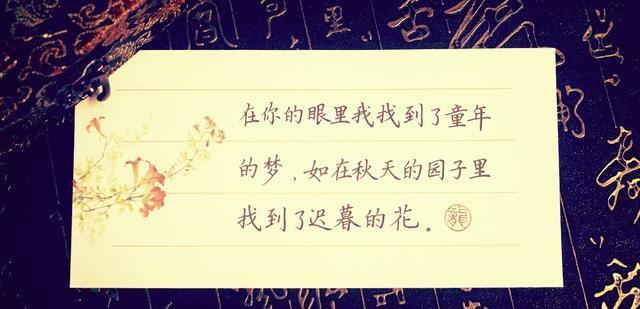 在你的眼里我找到了童年
的梦，如在秋天的园子里
找到了迟暮的花。